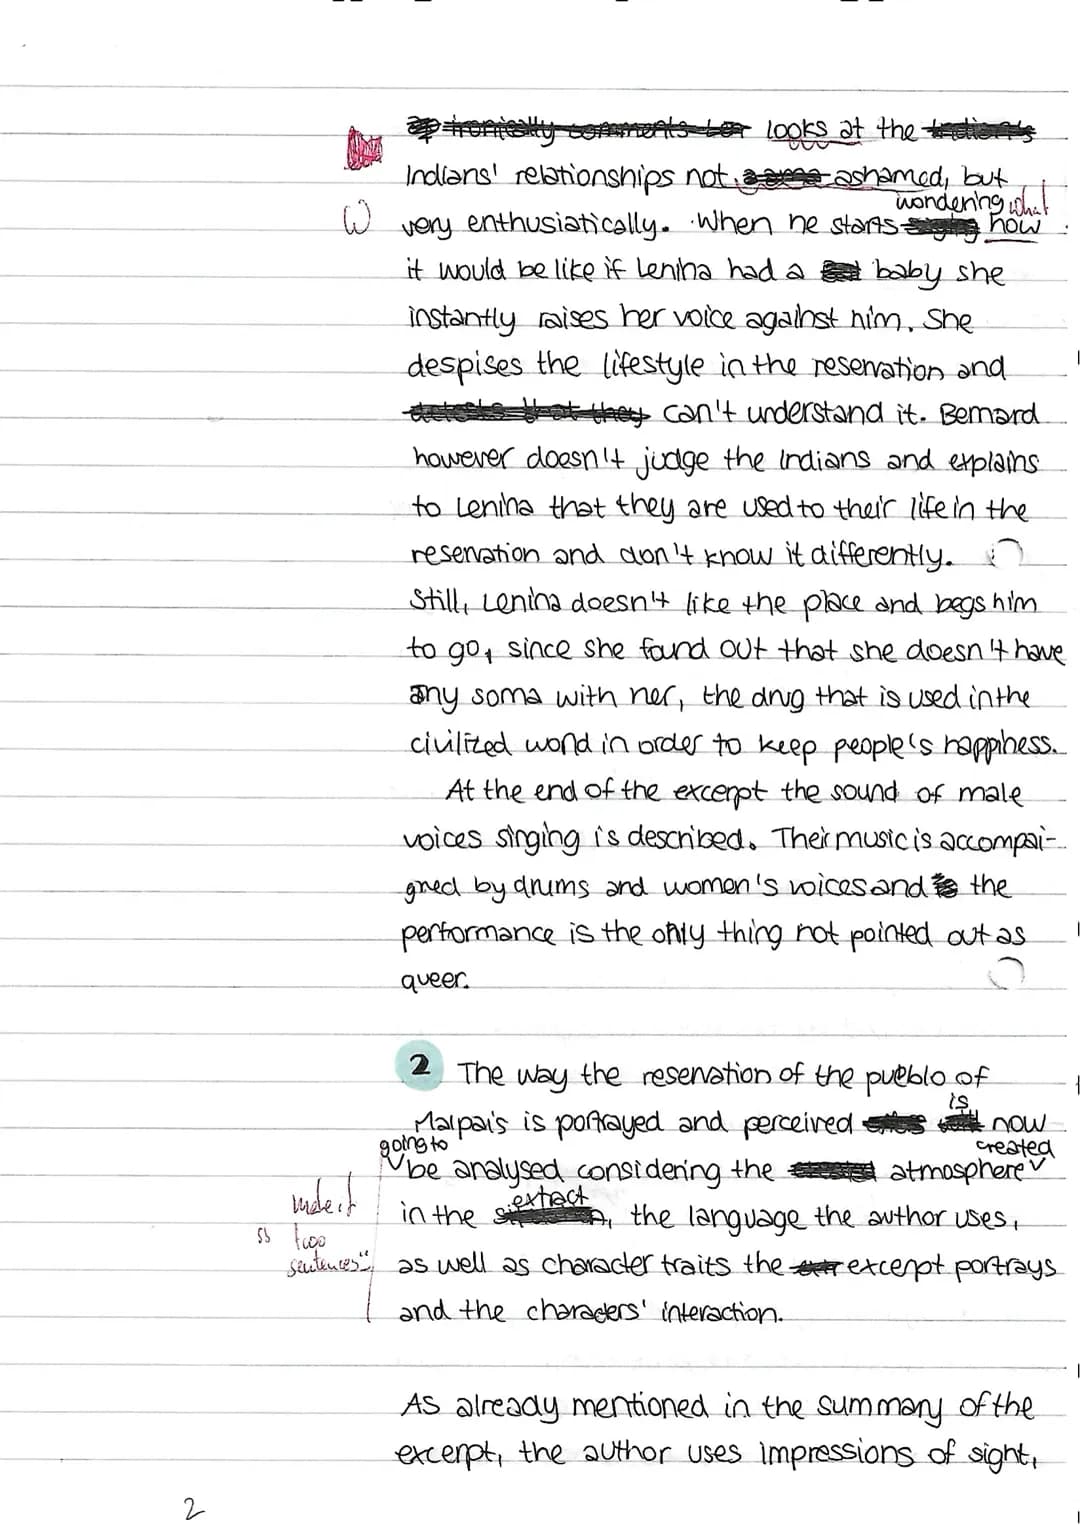 ironically comments her looks at the Indian's
Indians' relationships not ashamed, but
wondering what
W very enthusiatically. When he starts how
it would be like if Lenina had a baby she
instantly raises her voice against him. She
despises the lifestyle in the reservation and
that they can't understand it. Bernard
however doesn't judge the Indians and explains
to Lenina that they are used to their life in the
reservation and don't know it differently.
Still, Lenina doesn't like the place and begs him
to go, since she found out that she doesn't have
any soma with her, the drug that is used in the
civilized world in order to keep people's happiness.
At the end of the excerpt the sound of male
voices singing is described. Their music is accompai-
gned by drums and women's voices and the
performance is the only thing not pointed out as
queer.
2 The way the reservation of the pueblo of
is
Malpais is portrayed and perceived now
going to created
be analysed considering the atmosphere
make it extract
in the , the language the author uses,
ss two
sentences" as well as character traits the excerpt portrays
and the characters' interaction.
As already mentioned in the summary of the
excerpt, the author uses impressions of sight,
2